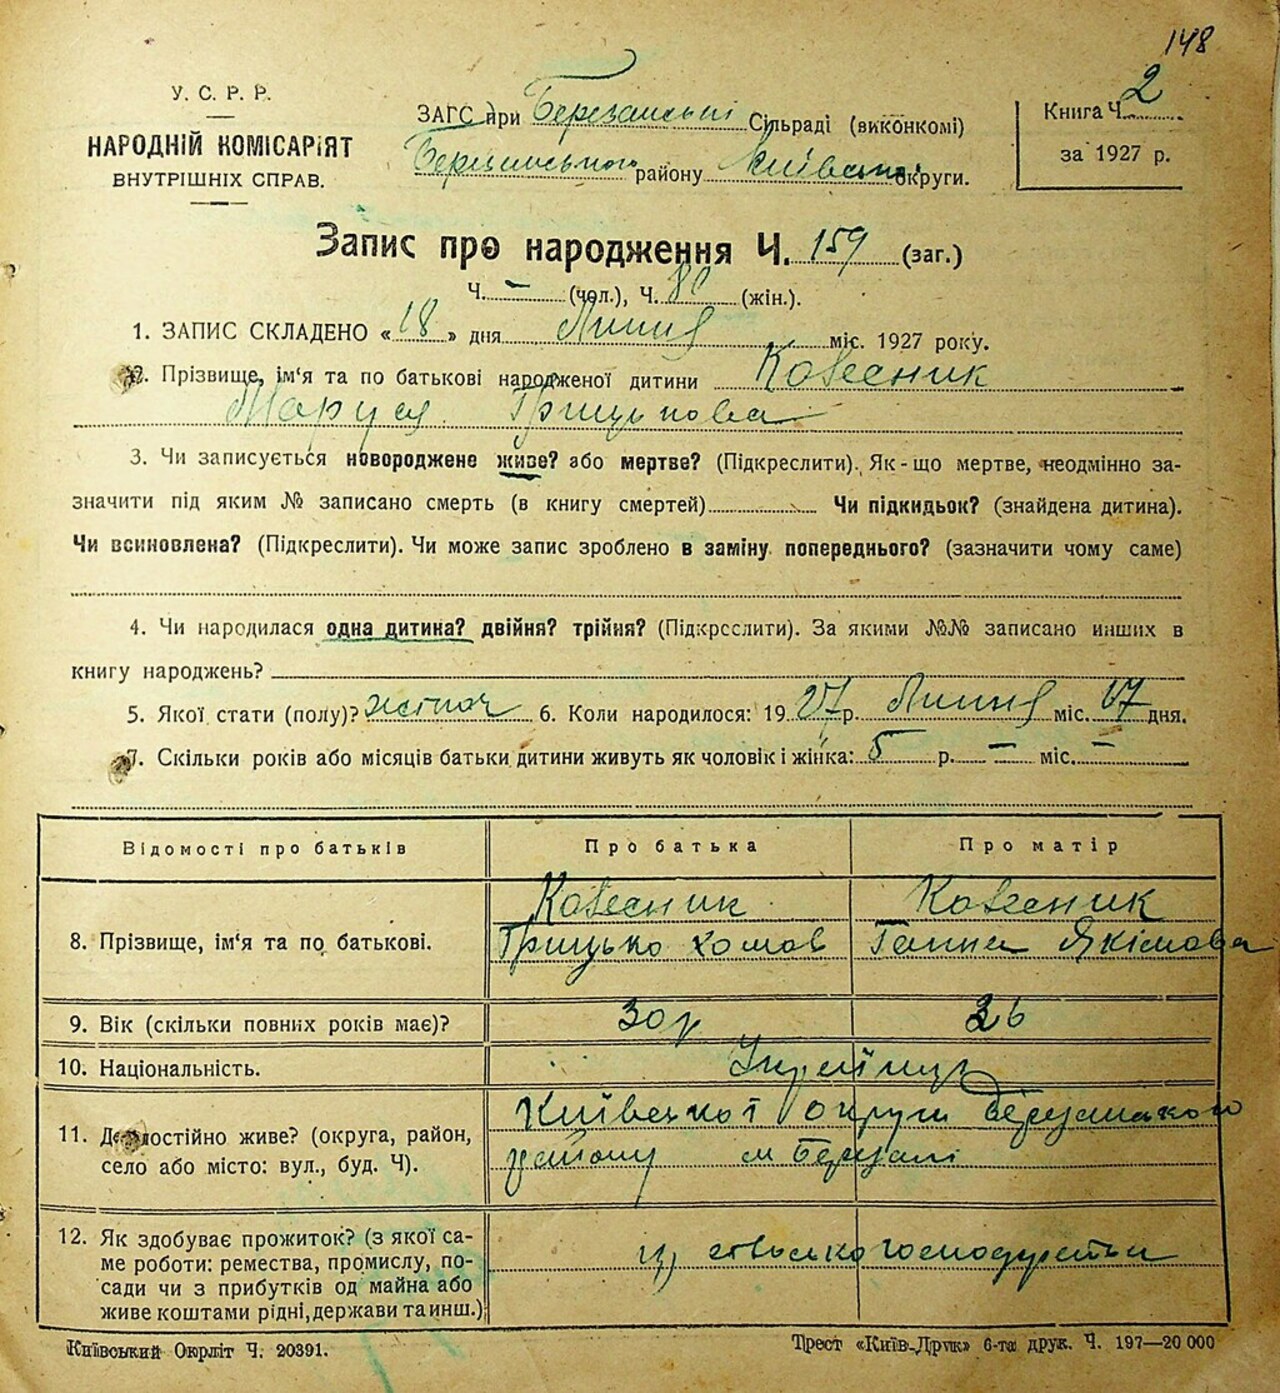 148
У. С. Р. Р.
НАРОДНІЙ КОМІСАРІЯТ
ВНУТРІШНІХ СПРАВ.
ЗАГС при Березанські Сільраді (виконкомі)
Березанського району Київської округи.
Книга Ч. 2
за 1927 р.
Запис про народження Ч. 159 (заг.)
Ч. – (чол.), Ч. 80 (жін.).
1. ЗАПИС СКЛАДЕНО «18» дня Липня міс. 1927 року.
2. Прізвище, ім‘я та по батькові народженої дитини Колесник
Маруся Грицькова
3. Чи записується новороджене живе? або мертве? (Підкреслити). Як-що мертве, неодмінно за-
значити під яким № записано смерть (в книгу смертей) Чи підкидьок? (знайдена дитина).
Чи всиновлена? (Підкреслити). Чи може запис зроблено в заміну попереднього? (зазначити чому саме)
4. Чи народилася одна дитина? двійня? трійня? (Підкреслити). За якими №№ записано инших в
книгу народжень?
5. Якої стати (полу)? жіноч 6. Коли народилося: 1927 р. Липня міс. 17 дня.
7. Скільки років або місяців батьки дитини живуть як чоловік і жінка: 5 р. – міс. –
Відомості про батьків Про батька Про матір
8. Прізвище, ім‘я та по батькові.
Колесник Колесник
Грицько Хомов Ганна Якімова
9. Вік (скільки повних років має)? 30 р 26
10. Національність. Українці
11. Де постійно живе? (округа, район,
село або місто: вул., буд. Ч).
Київської округи Березанського
району м Березані
12. Як здобуває прожиток? (з якої са-
ме роботи: ремества, промислу, по-
сади чи з прибутків од майна або
живе коштами рідні, держави та инш.)
сільського господарства
Київський Окрліт Ч. 20391.
Трест «Київ-Друк» 6-та друк. Ч. 197—20 000